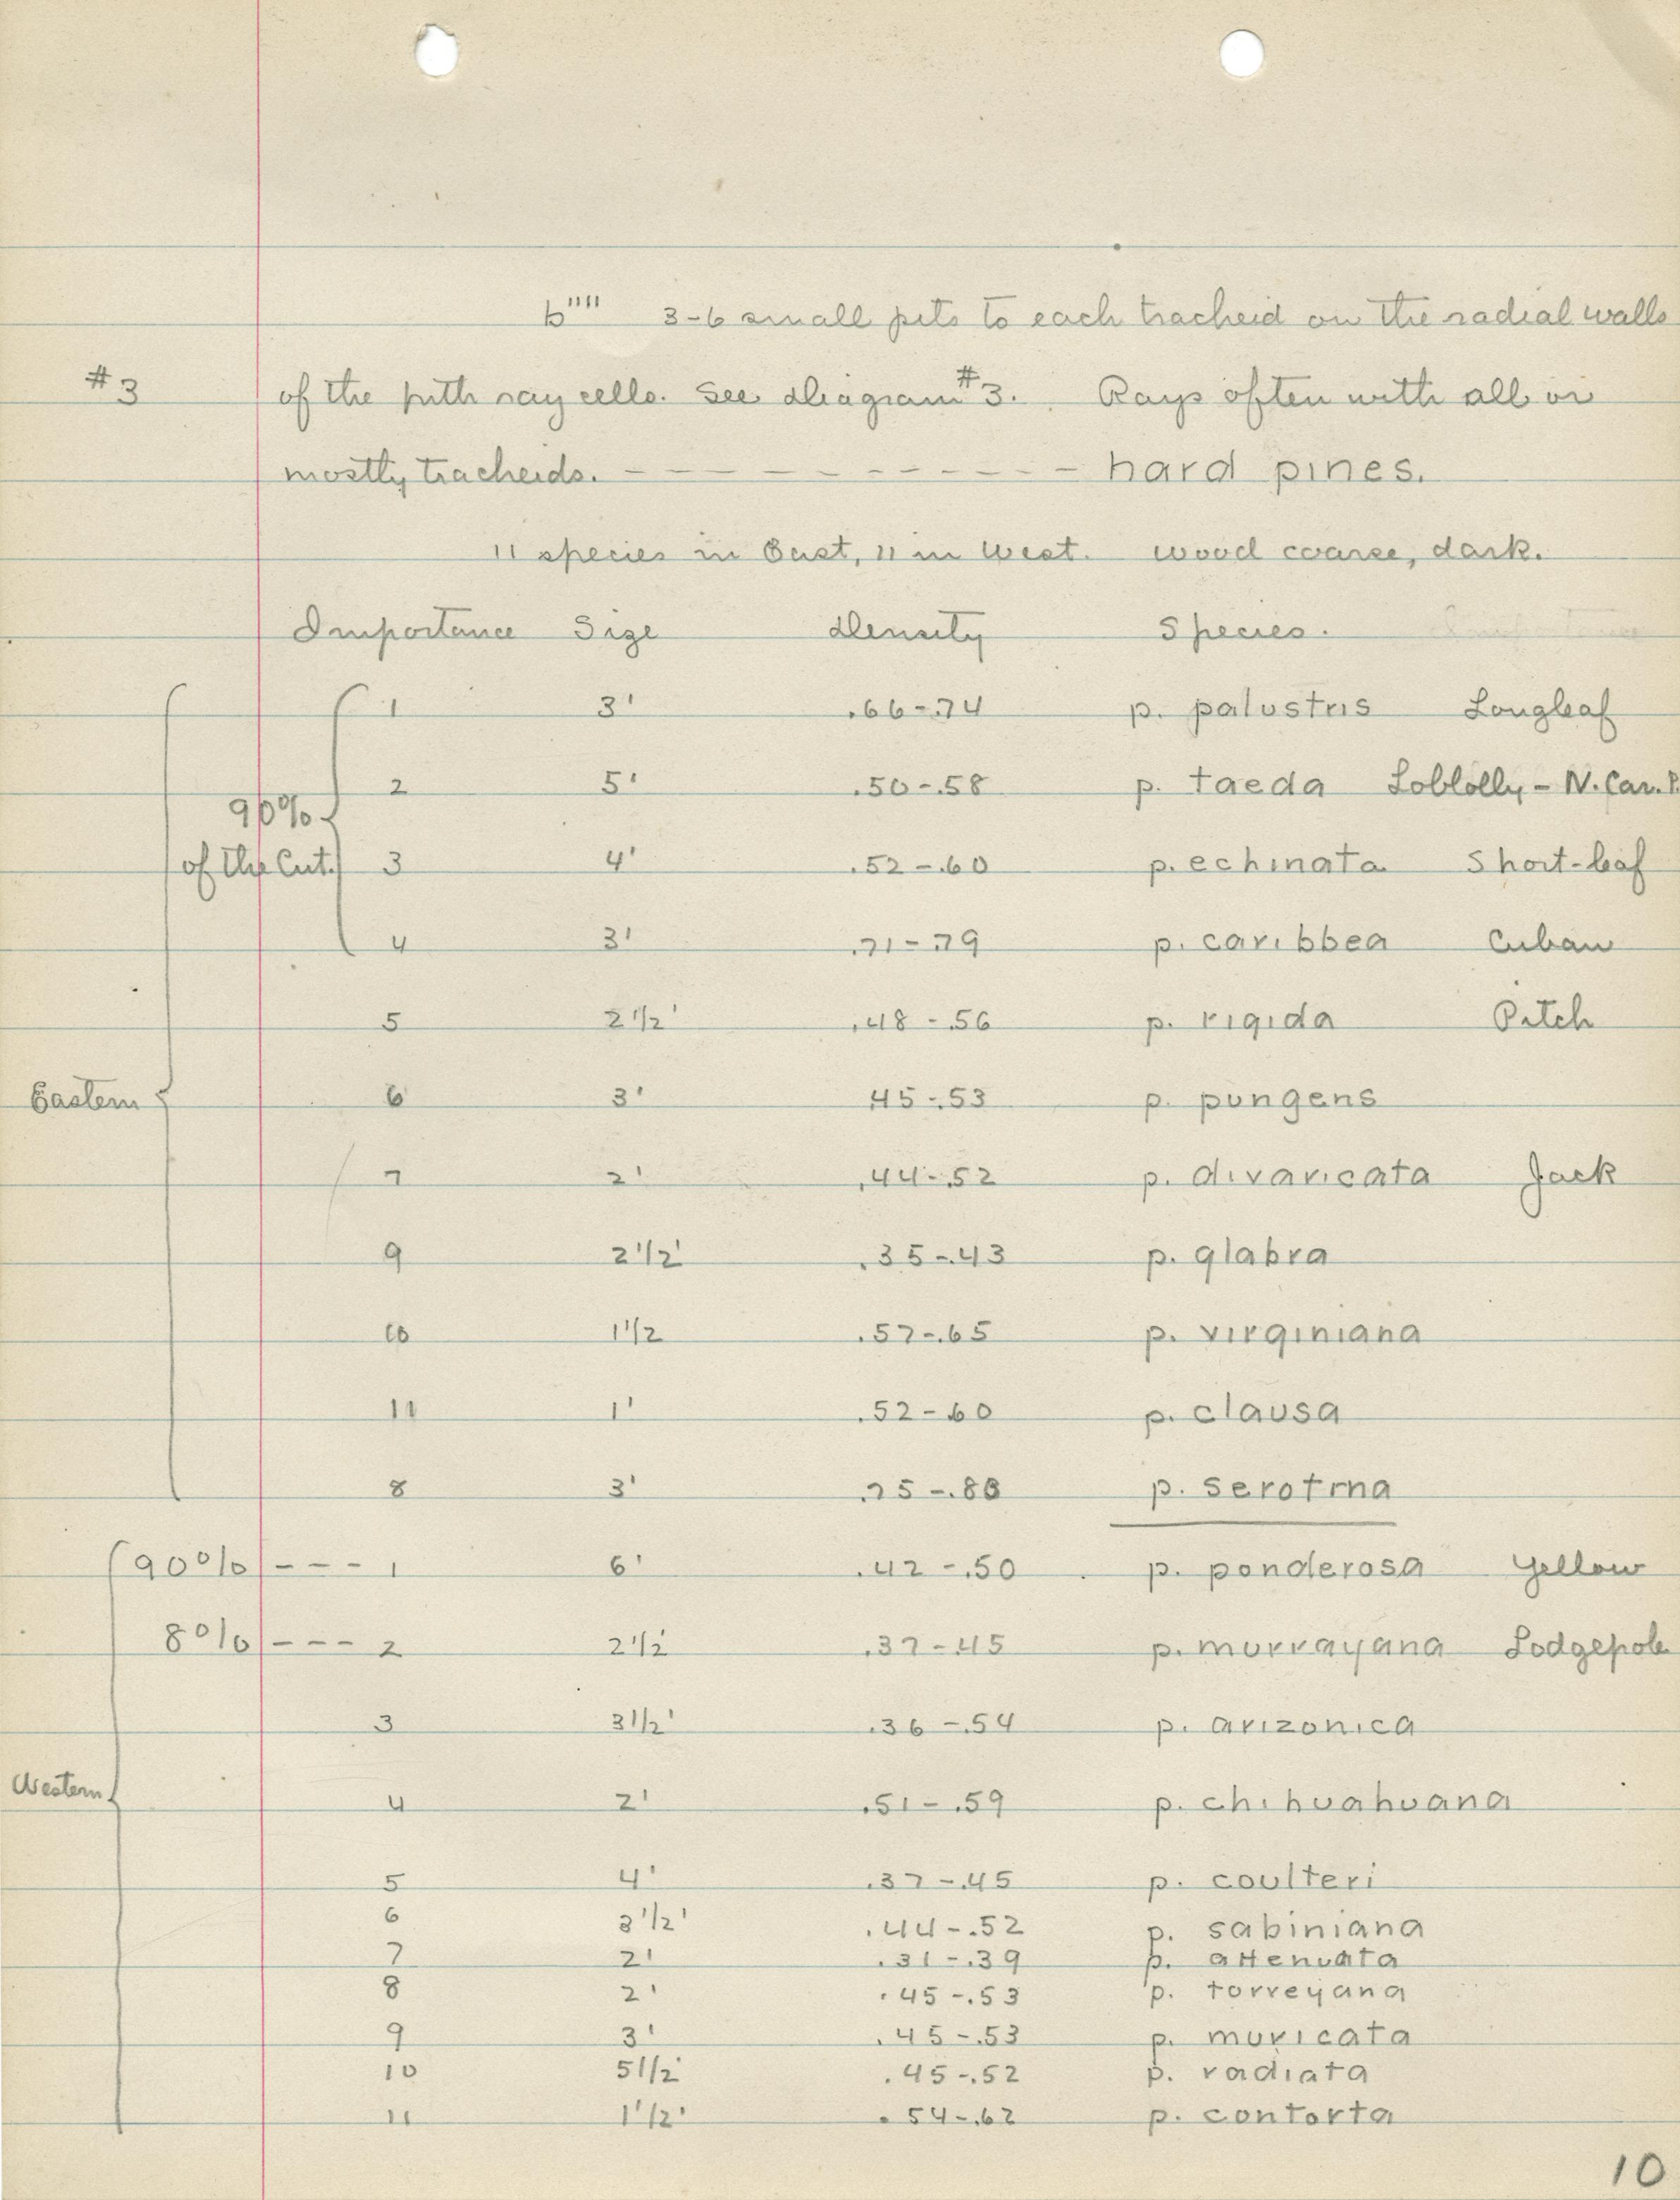 b'''' 3-6 small pits to each tracheid on the radial walls
#3 of the pith ray cells. See diagram #3. Rays often with all or
mostly tracheids. - - - - - - - - - - hard pines.
11 species in East, 11 in West. wood coarse, dark.
Importance Size Density Species.
1 3' .66-.74 p. palustris Longleaf
2 5' .50-.58 p. taeda Loblolly - N. Car. P.
90%
of the Cut. 3 4' .52-.60 p. echinata Short-leaf
4 3' .71-.79 p. caribbea Cuban
5 2 1/2' .48-.56 p. rigida Pitch
Eastern 6 3' 45-.53 p. pungens
7 2' .44-.52 p. divaricata Jack
9 2 1/2' .35-.43 p. glabra
10 1 1/2 .57-.65 p. virginiana
11 1' .52-60 p. clausa
8 3' .75-.80 p. serotina
90% - - - 1 6' .42-.50 p. ponderosa Yellow
8% - - - 2 2 1/2' .37-.45 p. murrayana Lodgepole
3 3 1/2' .36-.54 p. arizonica
Western 4 2' .51-.59 p. chihuahuana
5 4' .37-.45 p. coulteri
6 3 1/2' .44-.52 p. sabiniana
7 2' .31-.39 p. attenuata
8 2' .45-.53 p. torreyana
9 3' .45-.53 p. muricata
10 5 1/2' .45-.52 p. radiata
11 1 1/2' .54-.62 p. contorta
10